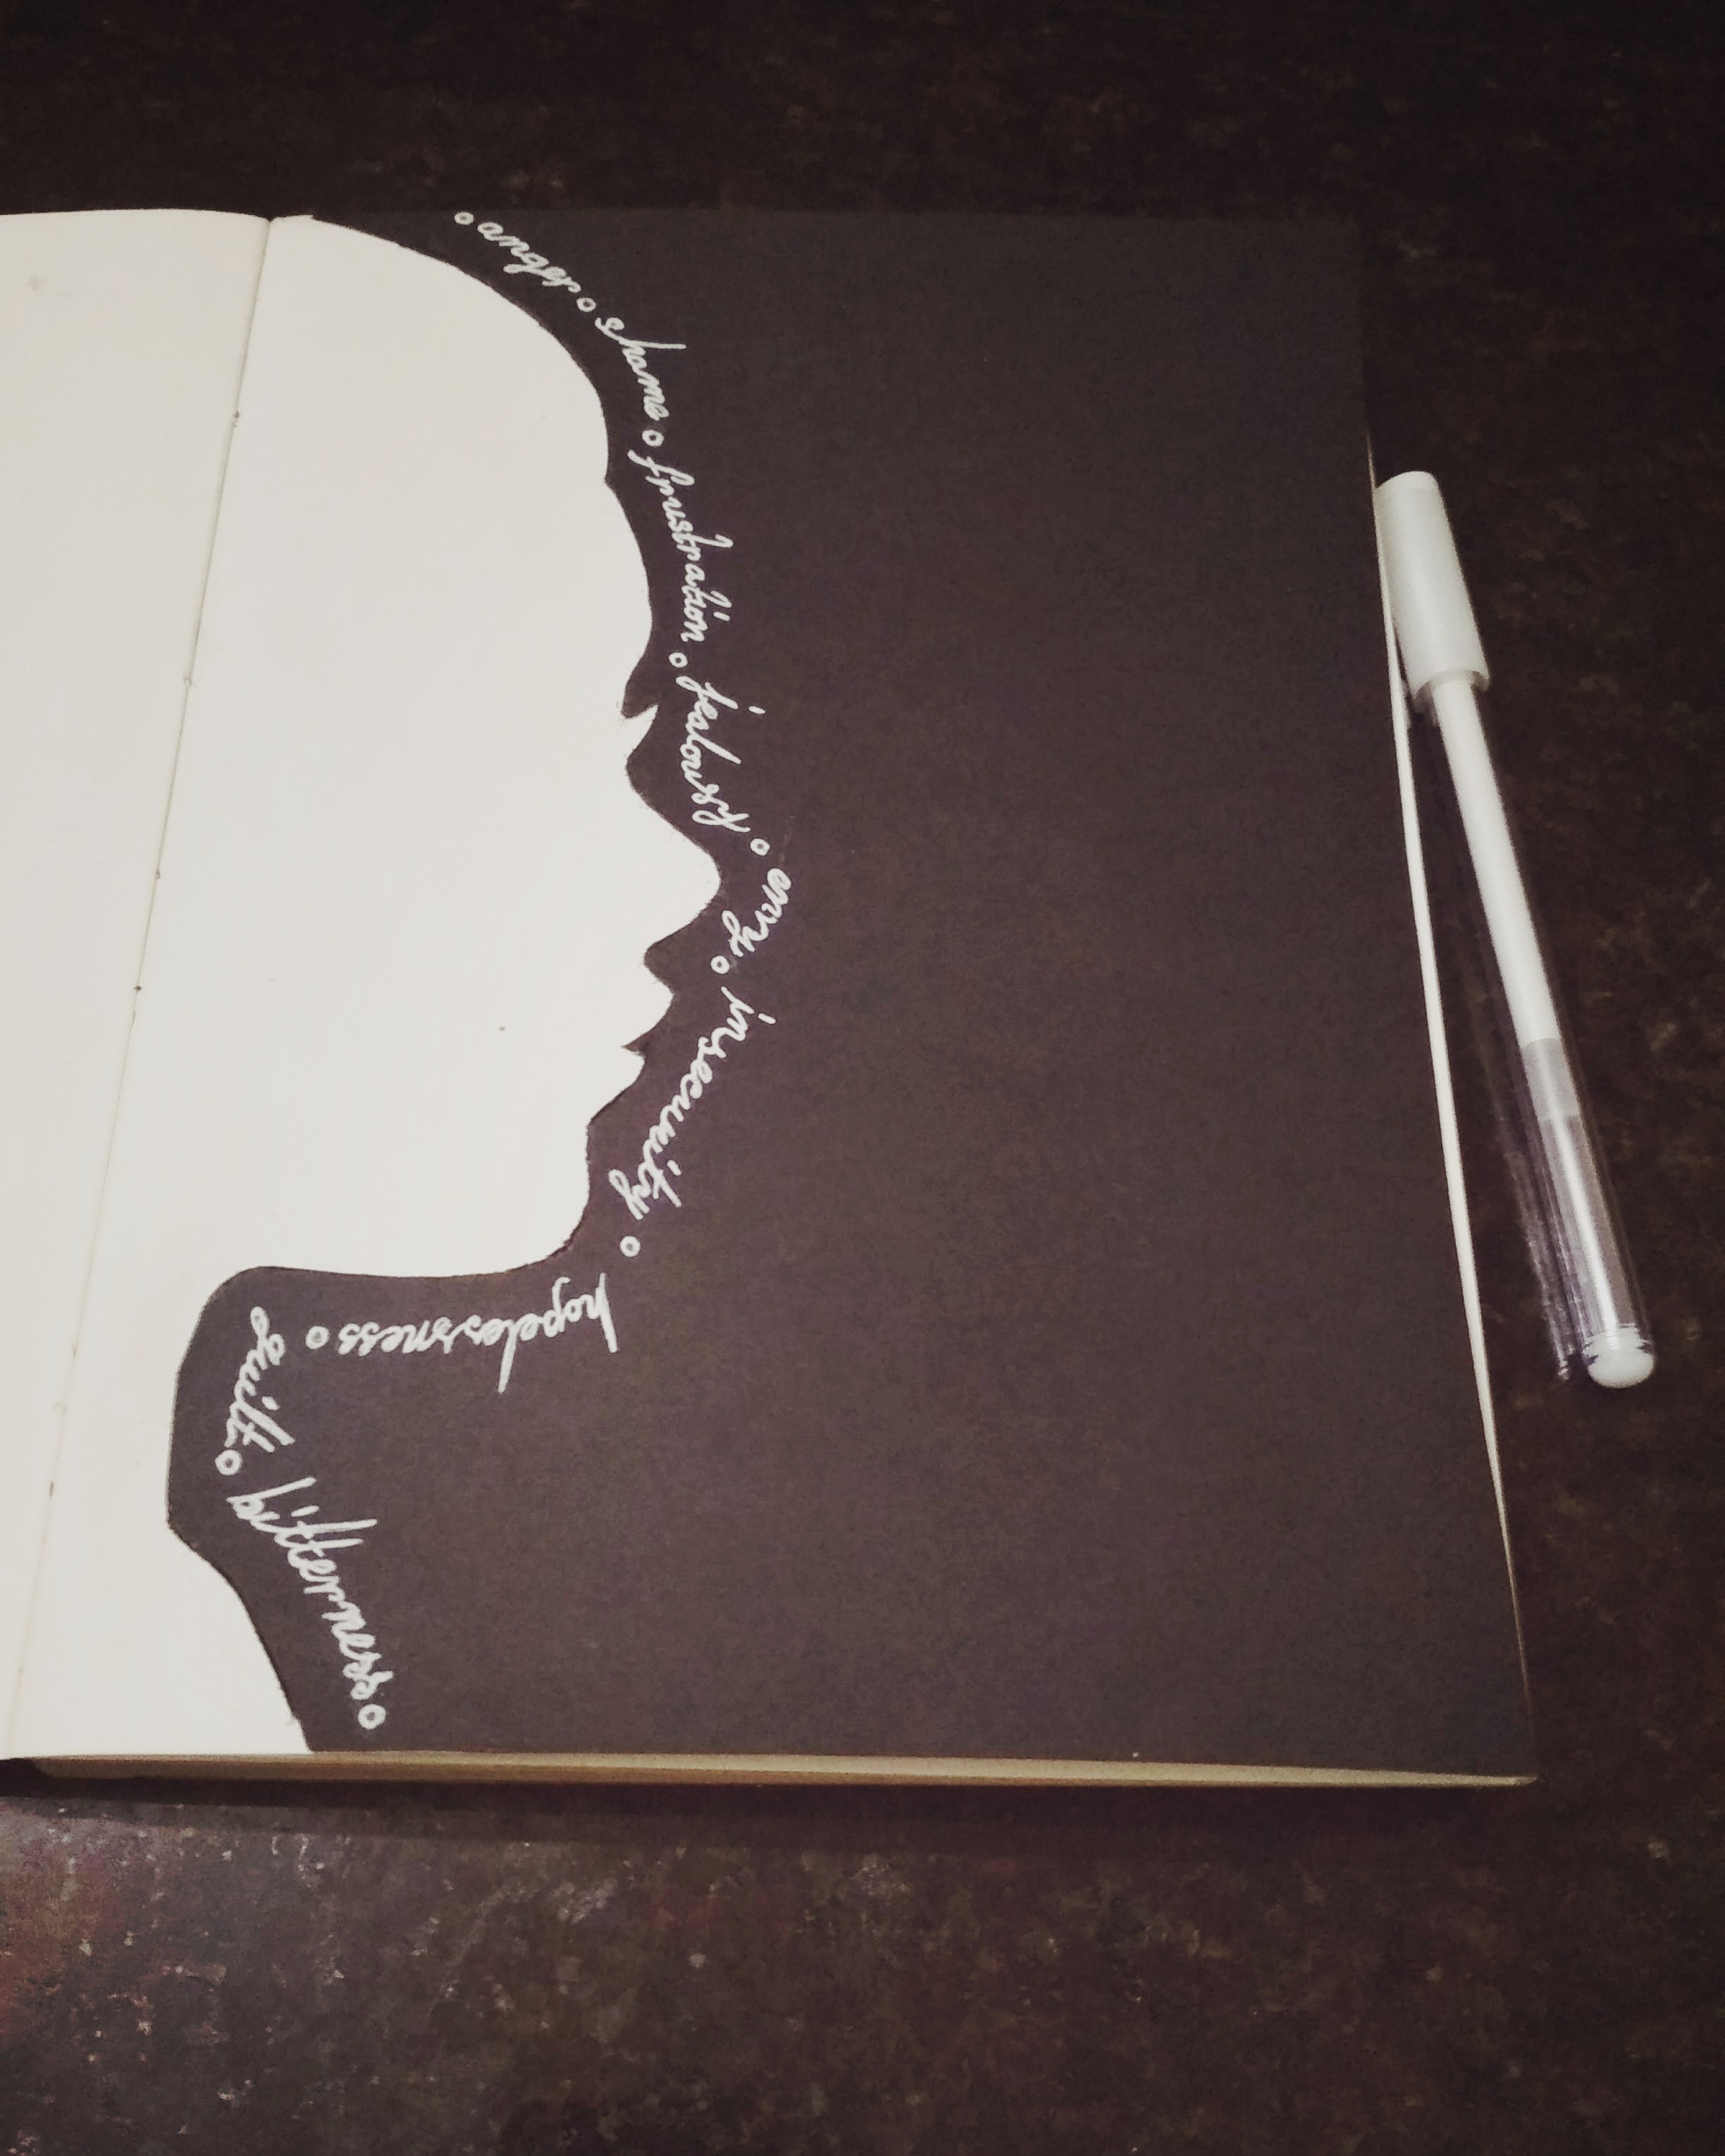 anger
shame
frustration
jealousy
envy
insecurity
hopelessness
guilt
bitterness